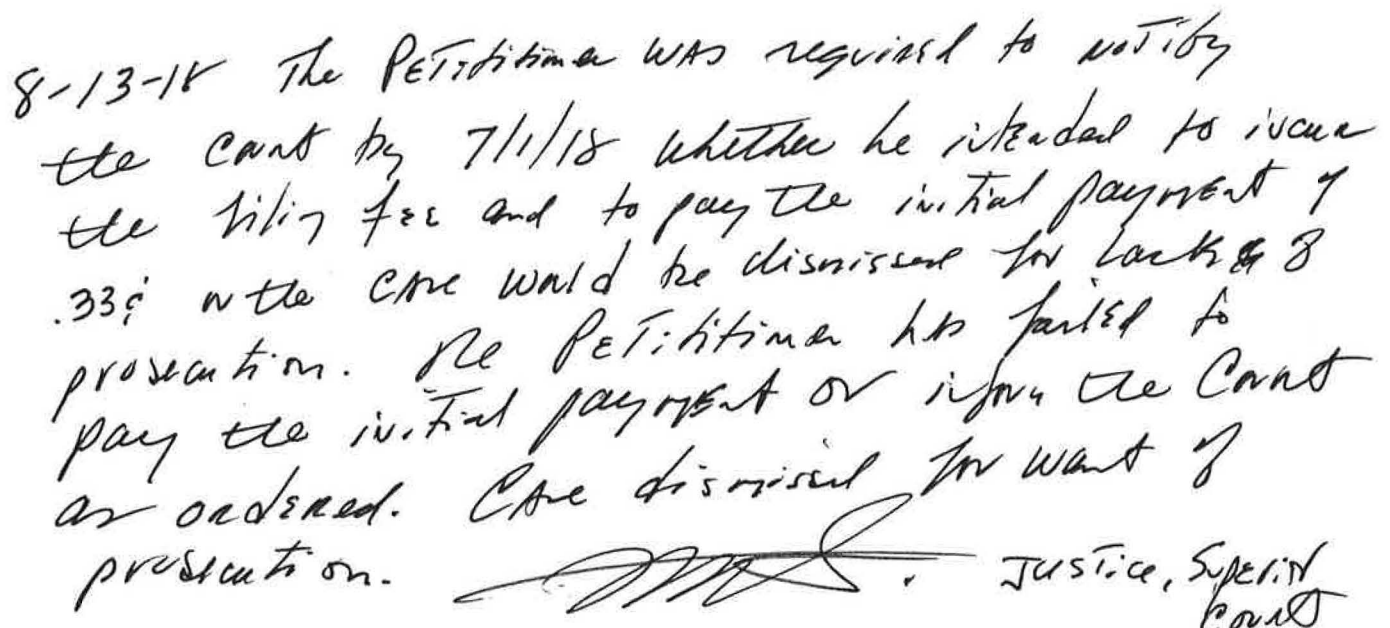 8-13-18 The Petitioner was required to notify
the Court by 7/1/18 whether he intended to incur
the filing fee and to pay the initial payment of
.33¢ or the case would be dismissed for lack of
prosecution. The Petitioner has failed to
pay the initial payment or inform the Court
as ordered. Case dismissed for want of
prosecution. Justice, Superior
Court